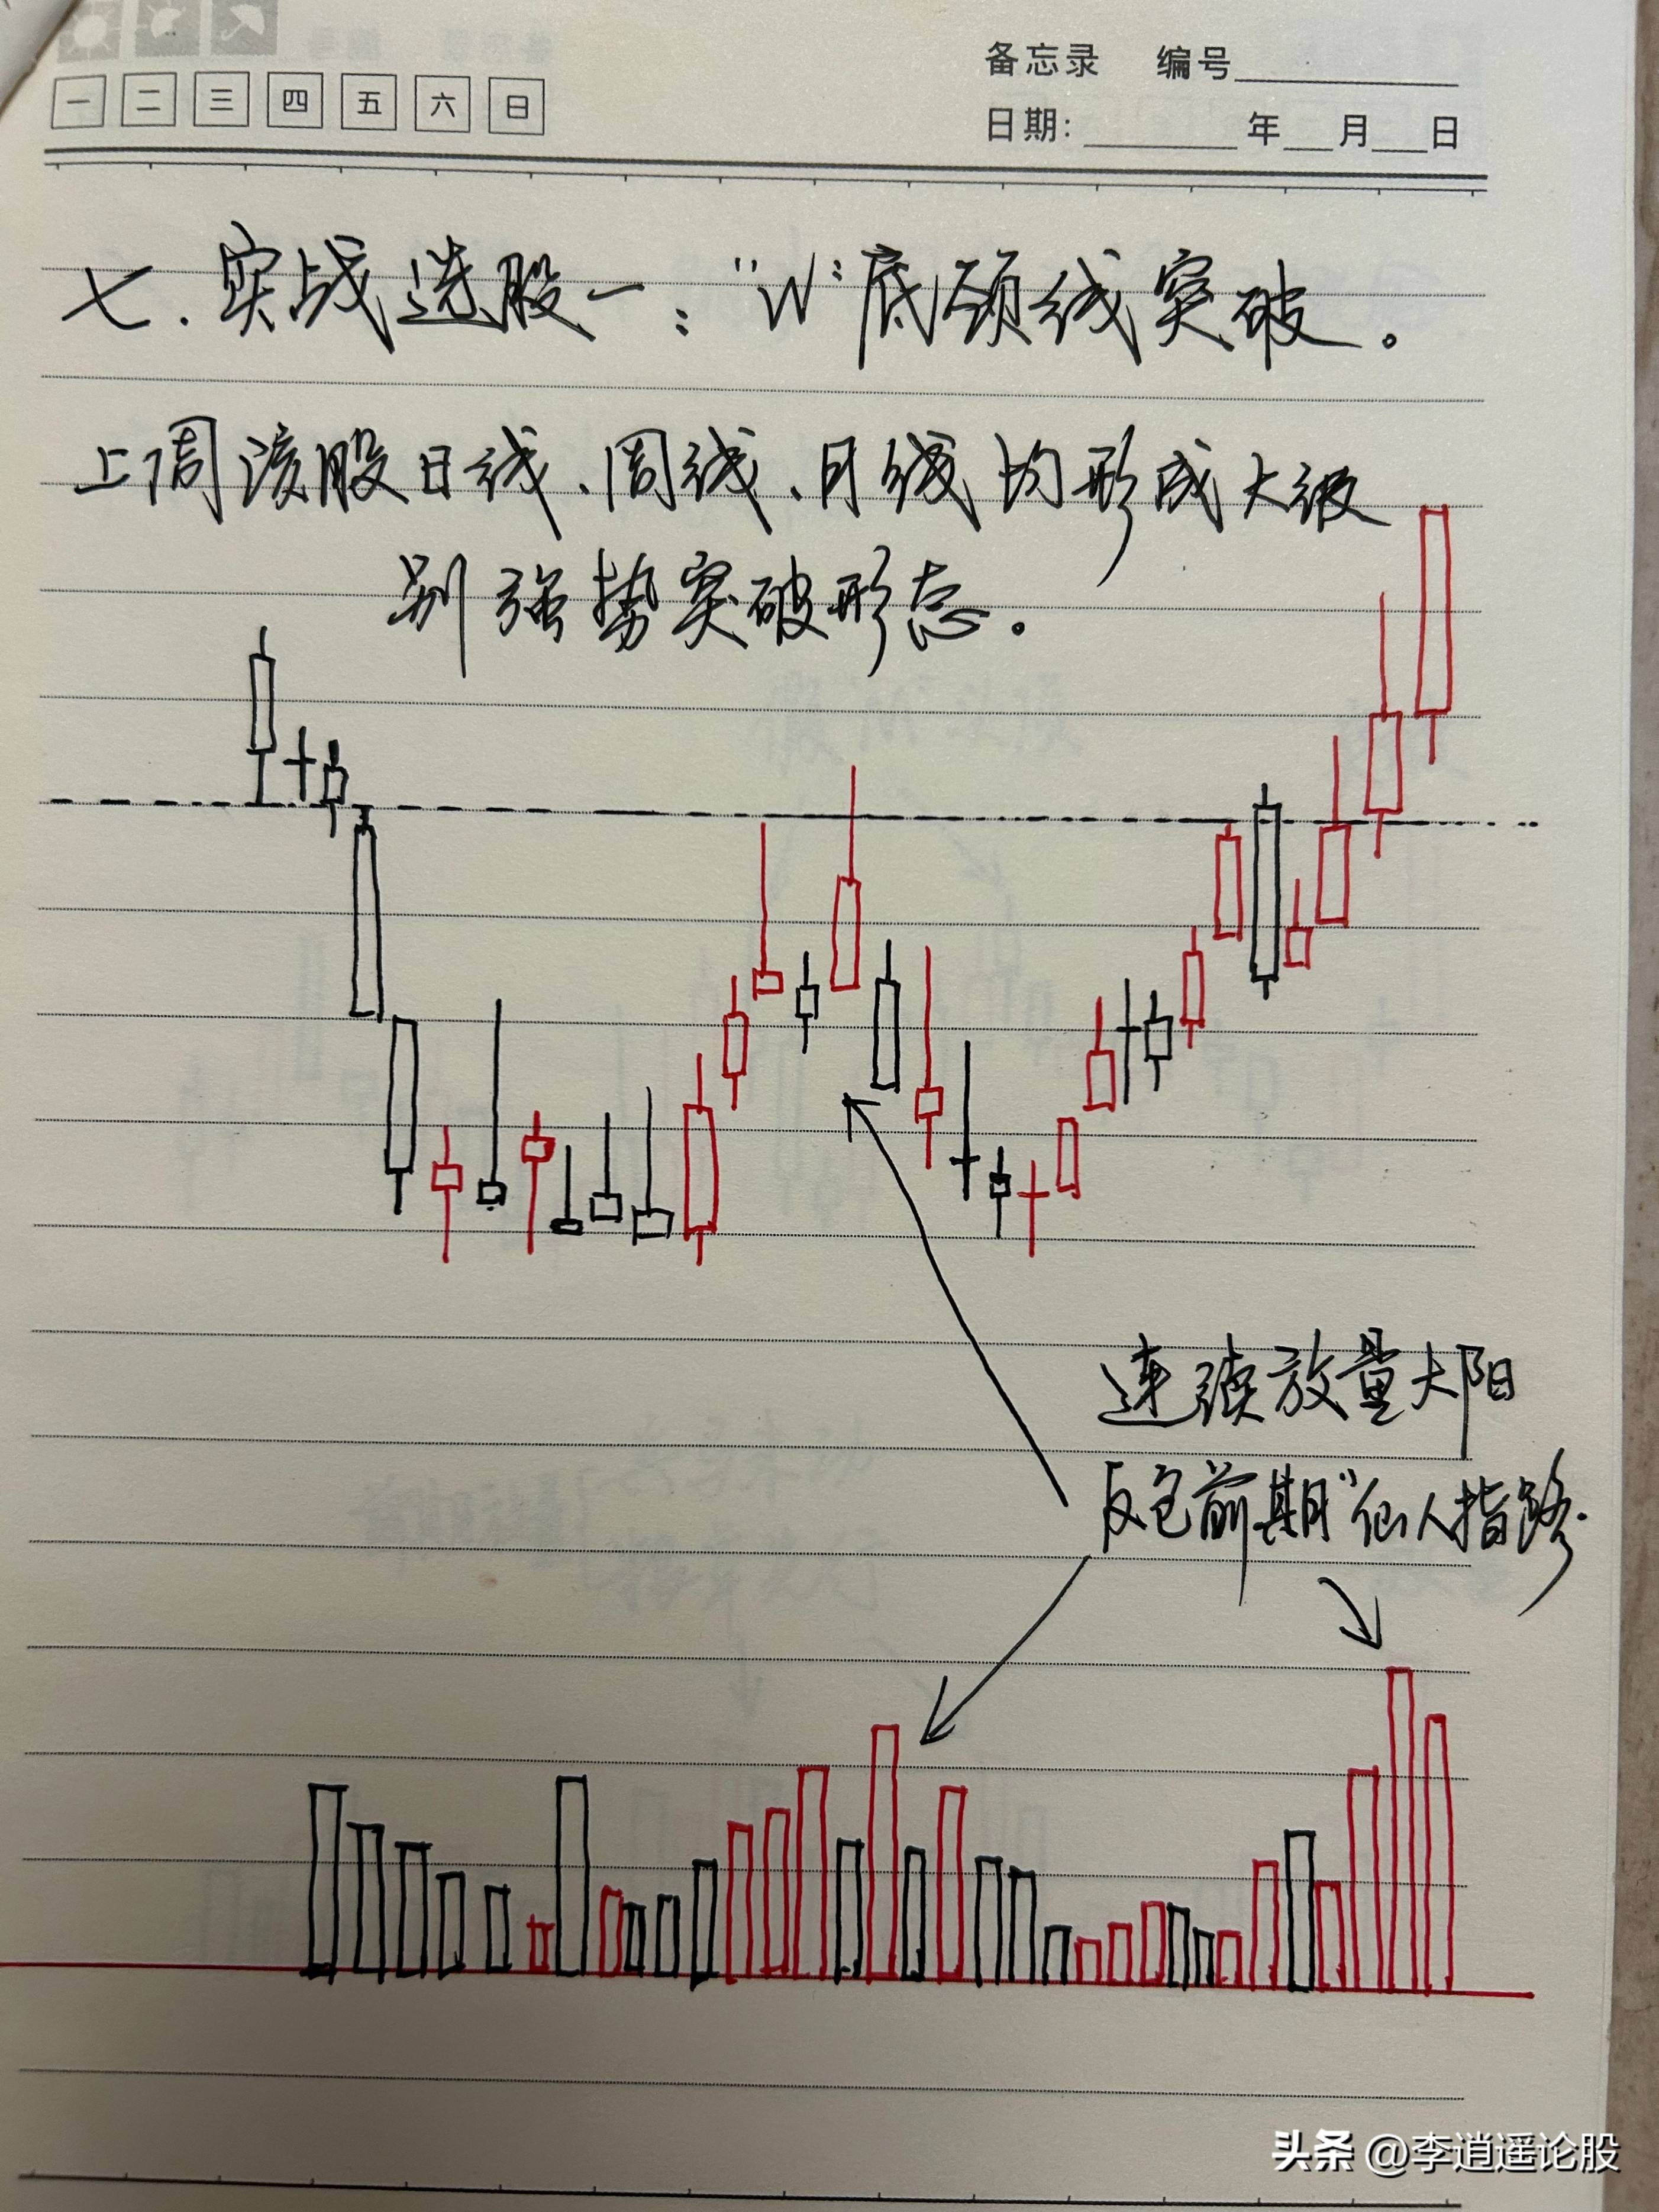 一 二 三 四 五 六 日
备忘录 编号
日期: 年 月 日
七.实战选股一:"W"底颈线突破。
上周该股日线、周线、月线均形成大级
别强势突破形态。
连续放量大阳
反包前期"仙人指路.
头条 @李逍遥论股